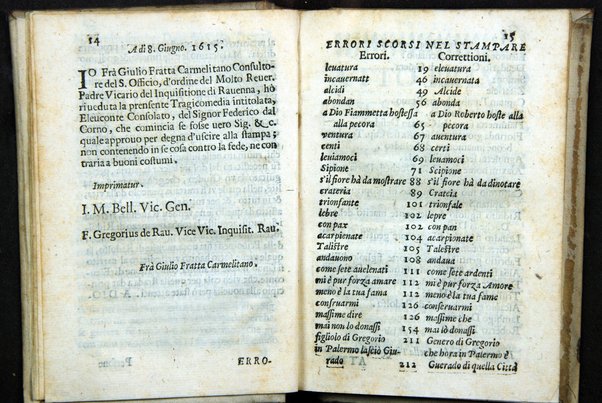 14
A dì 8. Giugno. 1615.
IO Frà Giulio Fratta Carmelitano Consulto-
re del S. Officio, d'ordine del Molto Reuer.
Padre Vicario del Inquisitione di Rauenna, hò
riueduta la prensente Tragicomedia intitolata,
Eleuiconte Consolato, del Signor Federico dal
Corno, che comincia se folse uero Sig. & c.
quale approuo per degna d'uscire alla stampa;
non contenendo in se cosa contro la fede, ne con
traria a buoni costumi.
Imprimatur.
I. M. Bell. Vic. Gen.
F. Gregorius de Rau. Vice Vic. Inquisit. Rau.
Frà Giulio Fratta Carmelitano.
ERRO-
15
ERRORI SCORSI NEL STAMPARE
Errori. Correttioni.
leuatura 19 eleuatura
incauernatt 46 incauernata
alcidi 49 Alcide
abondan 56 abonda
a Dio Fiammetta hostessa a Dio Roberto hoste alla
alla pecora 65 pecora
ventura 67 auentura
centi 68 certi
leuiamoci 69 leuamoci
Sipione 71 Scipione
s'il fiore hà da mostrare 88 s'il fiore hà da dinotare
crateria 89 Crateia
trionfante 101 trionfale
lebre 102 lepre
con pax 102 con pan
acarpienate 104 acarpionate
Talistre 105 Talestre
andauono 108 andaua
come sete auelenati 111 come sete ardenti
mi è pur forza amare 112 mi è pur forza Amore
meno è la tua fama 112 meno è la tua fame
consruarmi 126 conseruarmi
massime dire 126 massime che
mai non lo donassi 154 mai lo donassi
figliolo di Gregorio 211 Genero di Gregorio
in Palermo lasciò Giu- che hora in Palermo è
rado 212 Guerado di quella Città